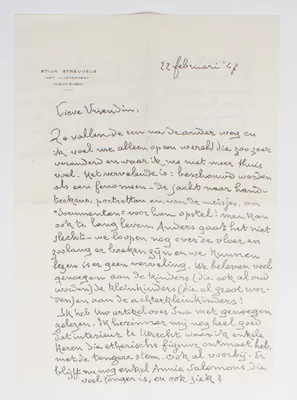 STIJN STREUVELS
"HET LIJSTERNEST"
INGOOIGEM
22 februari '47
Lieve Vriendin,
Zo vallen de een na de ander weg en
ik voel me alleen op een wereld die zoo zeer
veranderd en waar ik me niet meer thuis
voel. Het vervelende is: beschouwd worden
als een fenomeen – de jacht naar hand-
teekens, portretten en van de meisjes, om
"documenten" voor hun opstel! men kan
ook te lang leven. Anders gaat het niet
slecht – we loopen nog over de vloer en
zoolang er boeken zijn en we kunnen
lezen is er geen verveling. We beleven veel
genoegen aan de kinders (die ook al oud
worden) de kleinkinders (die al groot wor-
den) en aan de achterkleinkinders!
Ik heb Uw artikel over Ina met genoegen
gelezen. Ik herinner mij nog heel goed
dat interieur te Utrecht waar ik enkele
keren die etherische figuur ontmoet heb
met de tengere stem. Ook al voorbij. Er
blijft me nog enkel Annie Salomons, die
veel jonger is, en ook ziek!